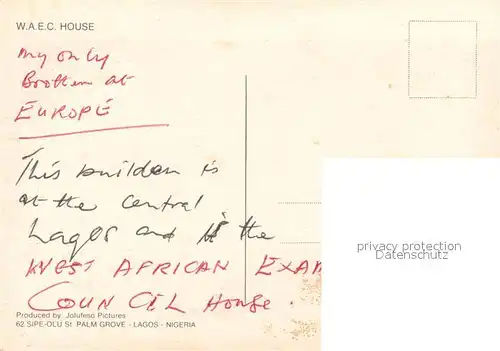 W.A.E.C. HOUSE
my only
Brother at
EUROPE
This builden is
at the central
Lagos and it the
WEST AFRICAN EXAM
COUNCEL House.
Produced by: Jolufeso Pictures
62 SIPE-OLU St PALM GROVE - LAGOS - NIGERIA
privacy protection
Datenschutz